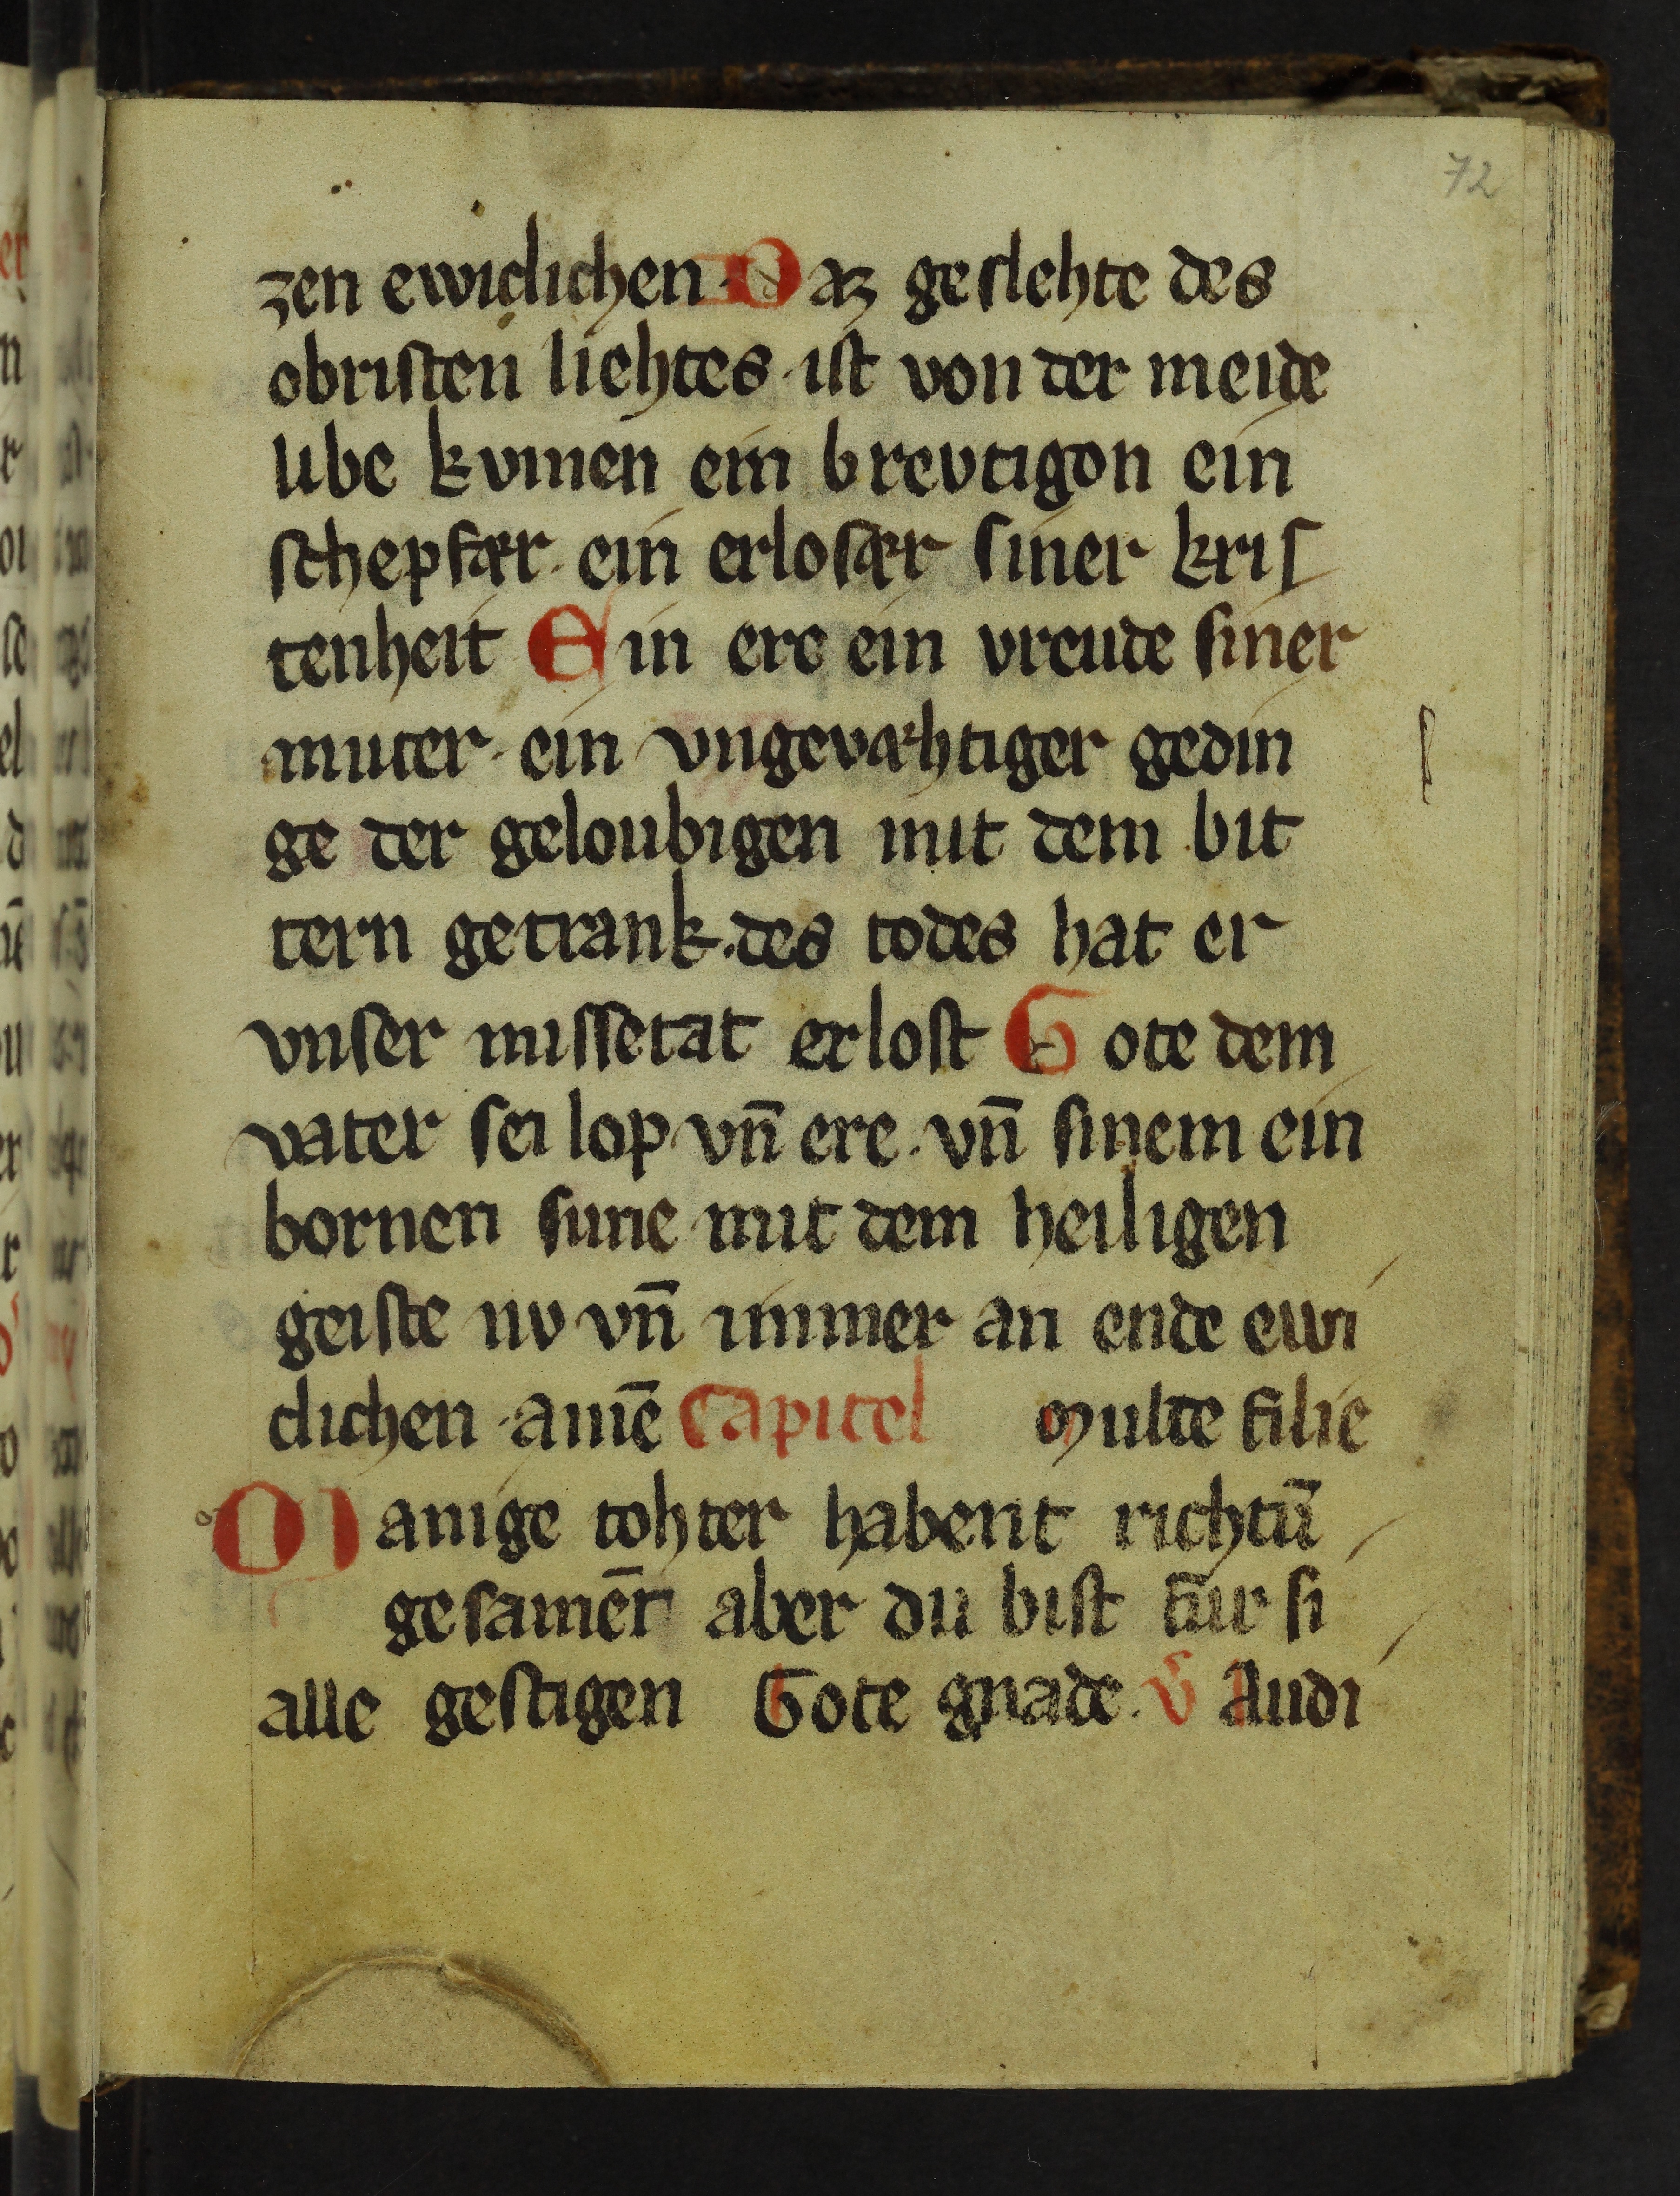 72
zen ewiclichen · Daz geslehte des
obristen liehtes · ist von der meide
libe kvmen ein brevtigon ein
schepfær · ein erlosær siner kris
tenheit Ein ere ein vreude siner
muter · ein vngevæhtiger gedin
ge der geloubigen mit dem bit
tern getrank · des todes hat er
vnser missetat erlost Gote dem
vater sei lop vn̄ ere · vn̄ sinem ein
bornen sune mit dem heiligen
geiste nv vn̄ immer an ende ewi
clichen · amē Capitel Multe filie
Manige tohter habent richtū
gesamēt aber du bist fur si
alle gestigen Gote gnade · v̄ Audi